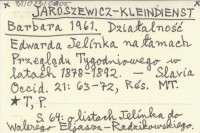 JAROSZEWICZ-KLEINDIENST
Barbara 1961. Działalność
Edwarda Jelinka na łamach
Przeglądu Tygodniowego w
latach 1878-1892. — Slavia
Occid. 21: 63-72, Rés. MT.
* T, P.
S. 64: o listach Jelinka do
Walerego Eljasza-Radzikowskiego.